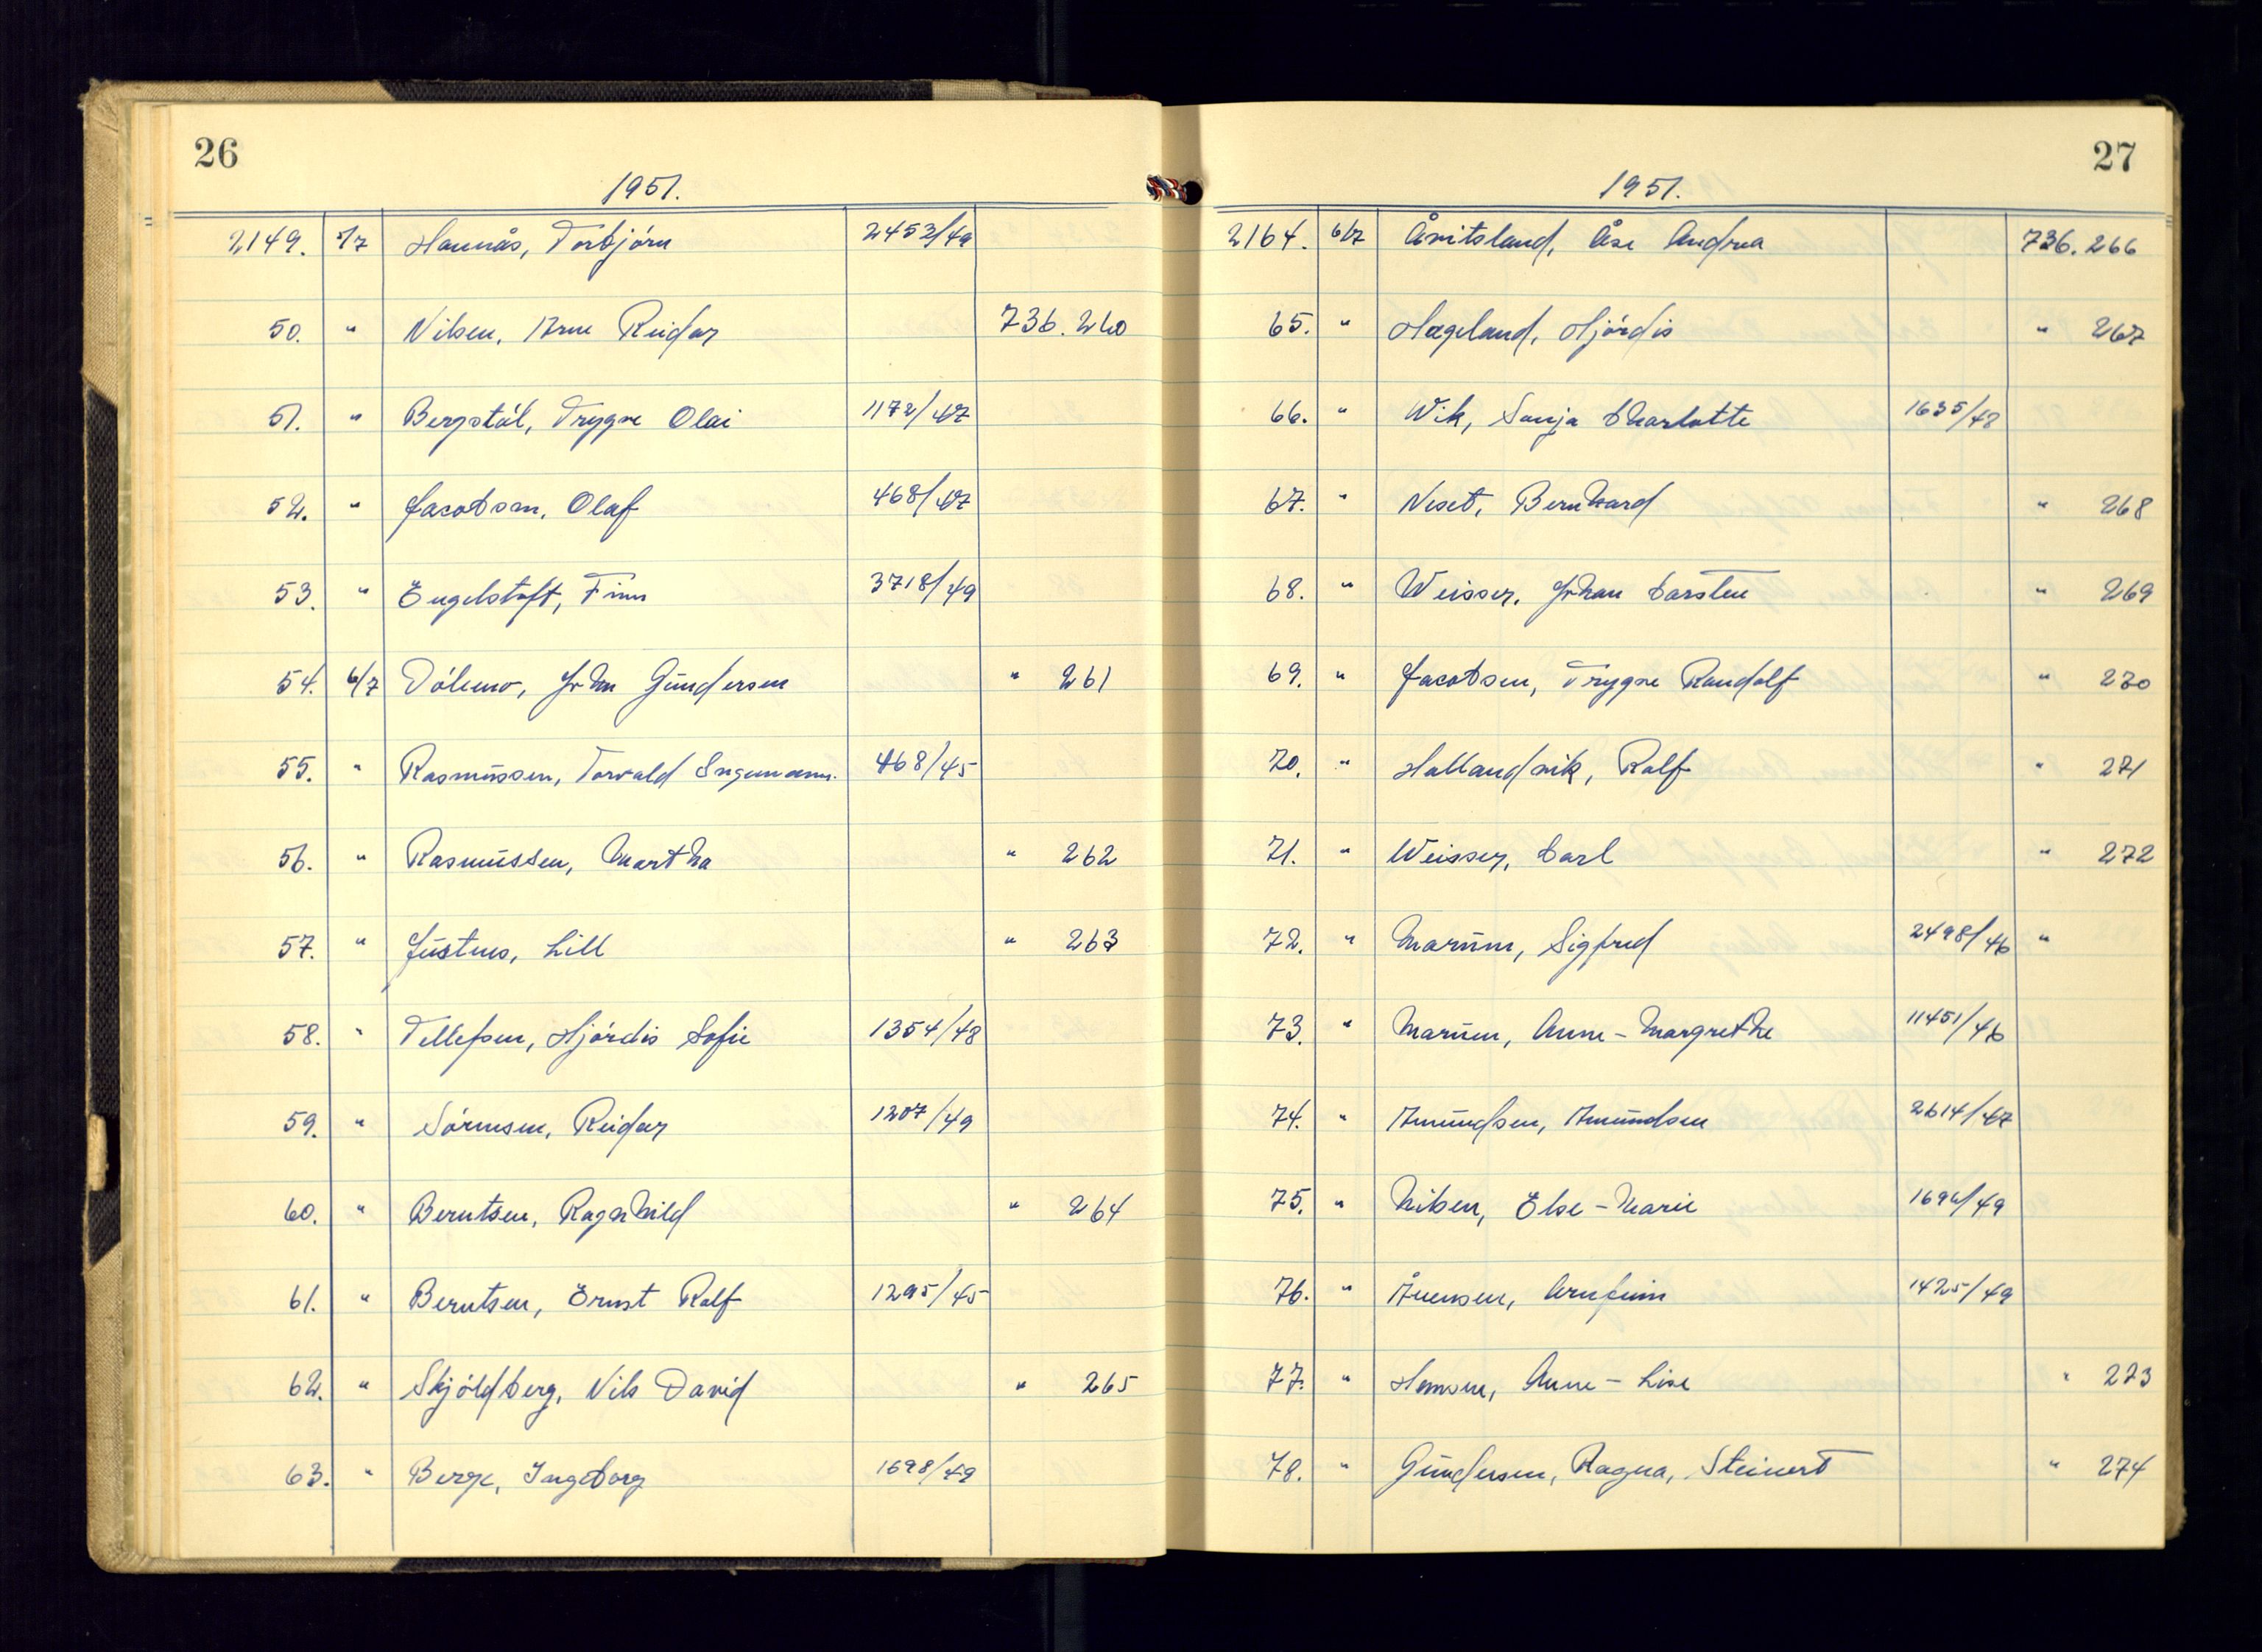 26
1951.
2149. 5/7 Hannås, Torbjörn 2453/49
50. " Nilsen, Arne Reidar 736.260
51. " Bergstöl, Trygve Olai 1172/47
52. " Jacobsen, Olaf 468/47
53. " Engelstoft, Finn 3718/49
54. 6/7 Dölemo, John Gundersen " 261
55. " Rasmussen, Torvald Ingemann. 468/45
56. " Rasmussen, Martha " 262
57. " Justnes, Lill " 263
58. " Tellefsen, Hjördis Sofie 1354/48
59. " Sörensen, Reidar 1207/49
60. " Berntsen, Ragnhild " 264
61. " Berntsen, Ernst Rolf 1295/45
62. " Skjöldberg, Nils David " 265
63. " Berge, Ingeborg 1698/49
27
1951.
2164. 6/7 Åvitsland, Åse Andrea 736.266
65. " Hægeland, Hjördis " 267
66. " Wik, Sonja Charlotte 1635/48
67. " Neset, Bernhard " 268
68. " Weisser, Johan Carsten " 269
69. " Jacobsen, Trygve Randolf " 270
70. " Hallandvik, Rolf " 271
71. " Weisser, Carl " 272
72. " Marum, Sigfred 2498/46 "
73. " Marum, Anne-Margrethe 11451/46
74. " Amundsen, Amundsen 2614/47
75. " Nilsen, Else-Marie 1694/49
76. " Ånensen, Arnfinn 1425/49
77. " Hansen, Anne-Lise " 273
78. " Gundersen, Ragna, Steinert " 274